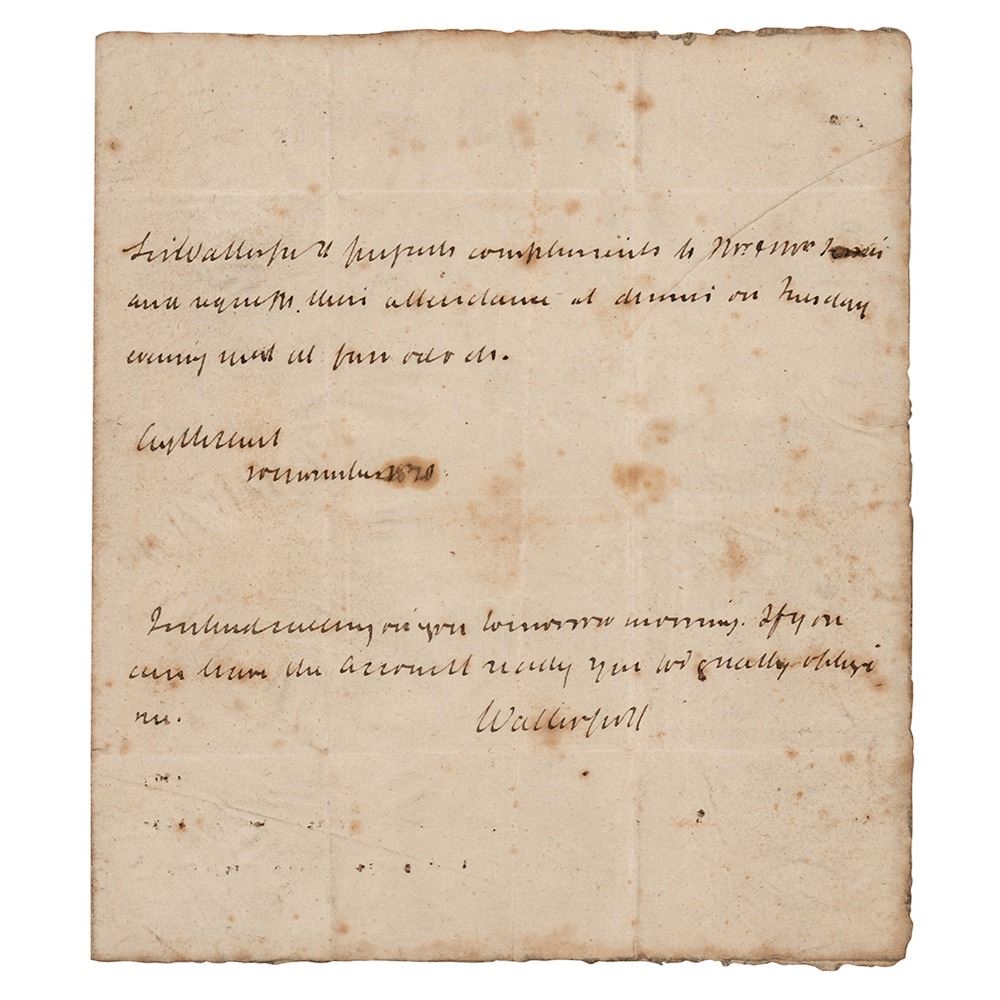 Sir Walter Scott presents complements to Mr & Mrs
and requests their attendance at dinner on Tuesday
evening next at o clock.
Castle Street
10 November 1820
I intend calling on you tomorrow morning. If you
can have the account ready you wd greatly oblige
me. Walter Scott